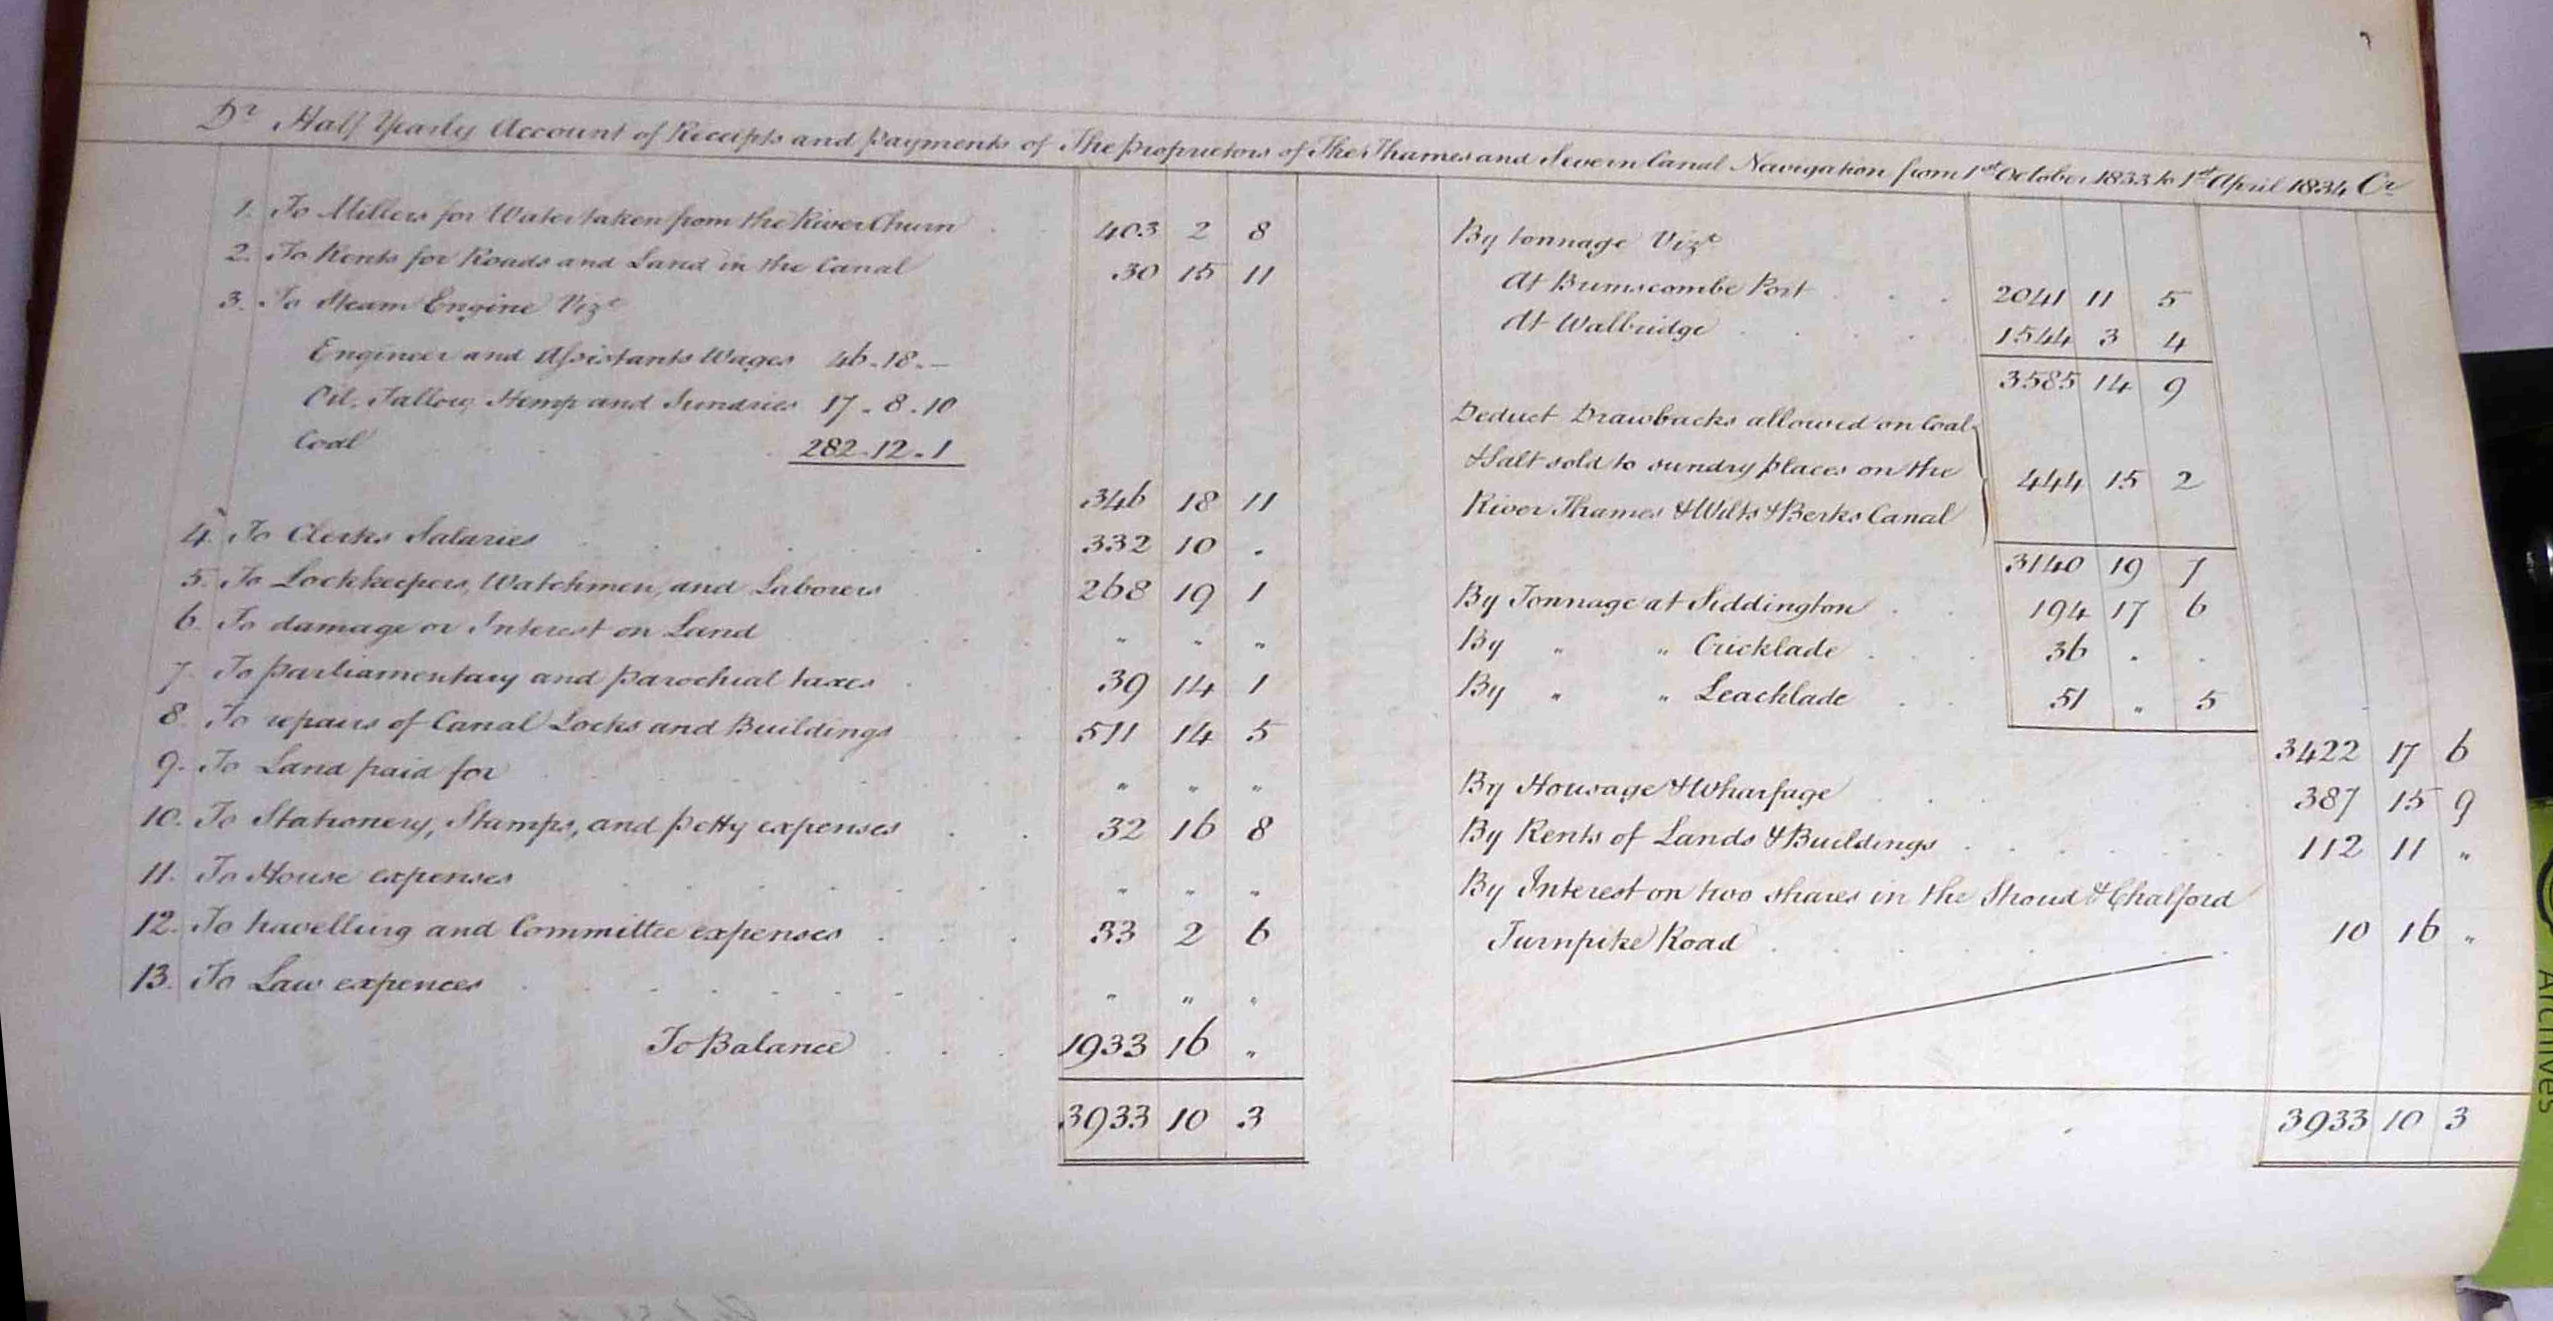 Dr Half Yearly Account of Receipts and Payments of The Proprietors of The Thames and Severn Canal Navigation from 1st October 1833 to 1st April 1834 Cr
1. To Millers for Water taken from the River Churn . . 403 2 8
2. To Rents for Roads and Land in the Canal 30 15 11
3. To Steam Engine Vizt
Engineer and Assistants Wages 46 . 18 . –
Oil, Tallow, Hemp and Sundries 17 . 8 . 10
Coal . . . 282 . 12 . 1
346 18 11
4. To Clerks Salaries . . . . . 332 10 .
5. To Lockkeepers, Watchmen, and Laborers . 268 19 1
6. To damage or Interest on Land . . . . " " "
7. To Parliamentary and Parochial taxes . . 39 14 1
8. To repairs of Canal Locks and Buildings . . 511 14 5
9. To Land paid for . . . . . " " "
10. To Stationery, Stamps, and Petty expenses . . 32 16 8
11. To House expenses . . . . . " " "
12. To travelling and Committee expenses . . . 33 2 6
13. To Law expences . . . . . . " " "
To Balance . . . 1933 16 "
3933 10 3
By tonnage Vizt
At Brimscombe Port . . . 2041 11 5
At Walbridge . . . . 1544 3 4
3585 14 9
Deduct Drawbacks allowed on Coal
& Salt sold to sundry places on the 444 15 2
River Thames & Wilts & Berks Canal
3140 19 7
By Tonnage at Siddington . . 194 17 6
By " " Cricklade . . . 36 . .
By " " Leachlade . . 51 " 5
3422 17 6
By Housage & Wharfage . . . . 387 15 9
By Rents of Lands & Buildings . . . . . . 112 11 "
By Interest on two shares in the Stroud & Chalford
Turnpike Road . . . . . . . 10 16 "
3933 10 3
Archives